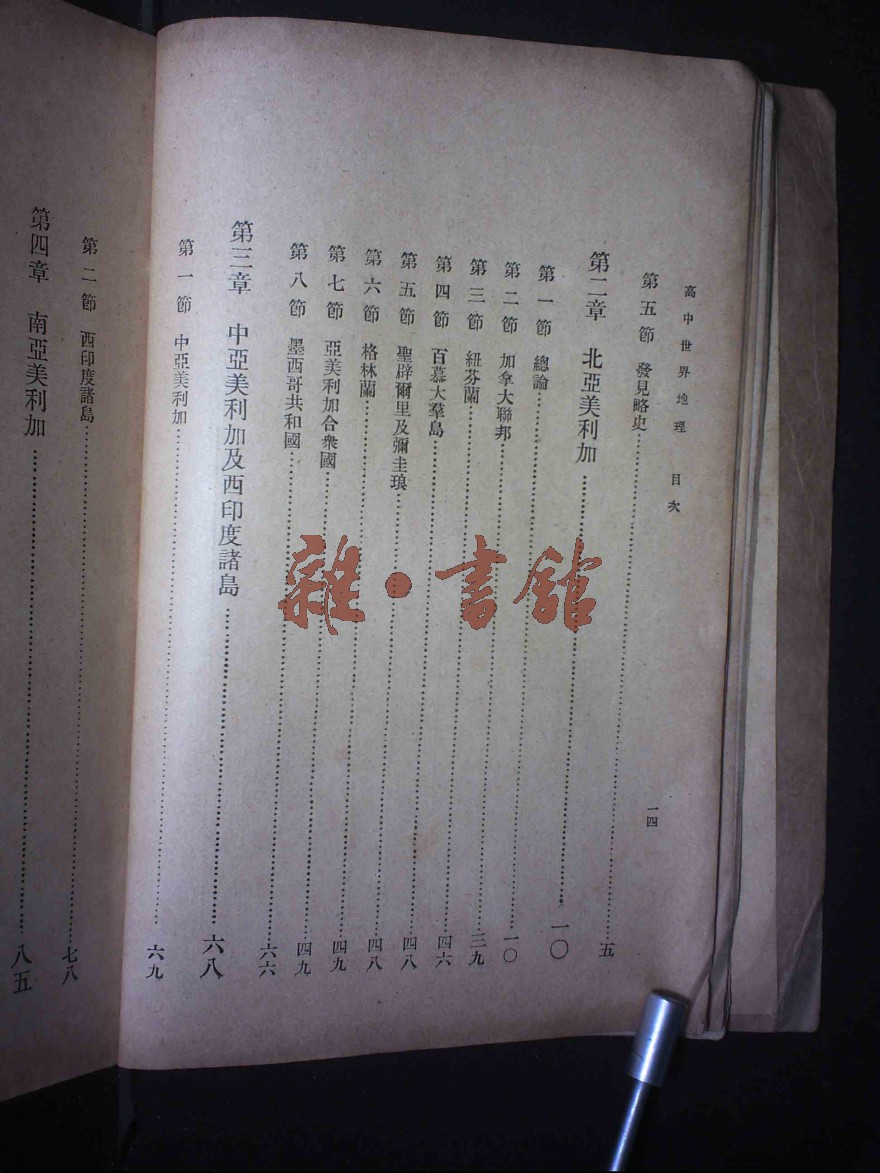 高中世界地理 目次 一四
第五節 發見略史……五
第二章 北亞美利加……一〇
第一節 總論……一〇
第二節 加拿大聯邦……三九
第三節 紐芬蘭……四六
第四節 百慕大羣島……四八
第五節 聖辟爾里及彌圭琅……四八
第六節 格林蘭……四九
第七節 亞美利加合衆國……四九
第八節 墨西哥共和國……六六
第三章 中亞美利加及西印度諸島……六八
第一節 中亞美利加……六九
第二節 西印度諸島……七八
第四章 南亞美利加……八五
雜·書館